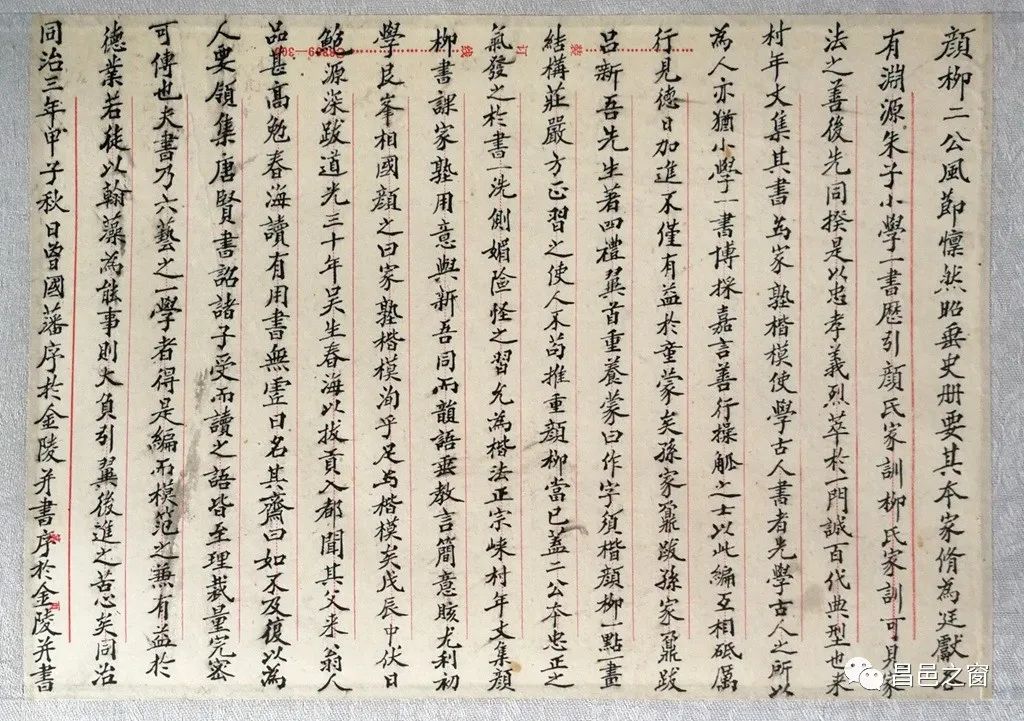 顔柳二公風節懍然昭垂史册要其本家脩為廷獻各
有淵源朱子小學一書歷引顔氏家訓柳氏家訓可見家
法之善後先同揆是以忠孝義烈萃於一門誠百代典型也來
村年丈集其書為家塾楷模使學古人書者先學古人之所以
為人亦猶小學一書博採嘉言善行操觚之士以此編互相砥厲
行見德日加進不僅有益於童蒙矣孫家鼐跋孫家鼐跋
吕新吾先生著四禮翼首重養蒙曰作字須楷顔柳一點一畫
結構莊嚴方正習之使人不苟推重顔柳當已蓋二公本忠正之
氣發之於書一洗側媚險怪之習允為楷法正宗崍村年丈集顔
柳書課家塾用意與新吾同而韻語垂教言簡意賅尤利初
學艮峯相國顔之曰家塾楷模洵乎足与楷模矣戊辰中伏日
鮑源深跋道光三十年吴生春海以拔貢入都聞其父來翁人
品甚高勉春海讀有用書無虚日名其齋曰如不及復以為
人要領集唐賢書詔諸子受而讀之語皆至理裁量完密
可傳也夫書乃六藝之一學者得是編而模范之兼有益於
德業若徒以翰藻為能事則大負引翼後進之苦心矣同治
同治三年甲子秋日曾國藩序於金陵并書序於金陵并書
装 订 线
昌邑之窗